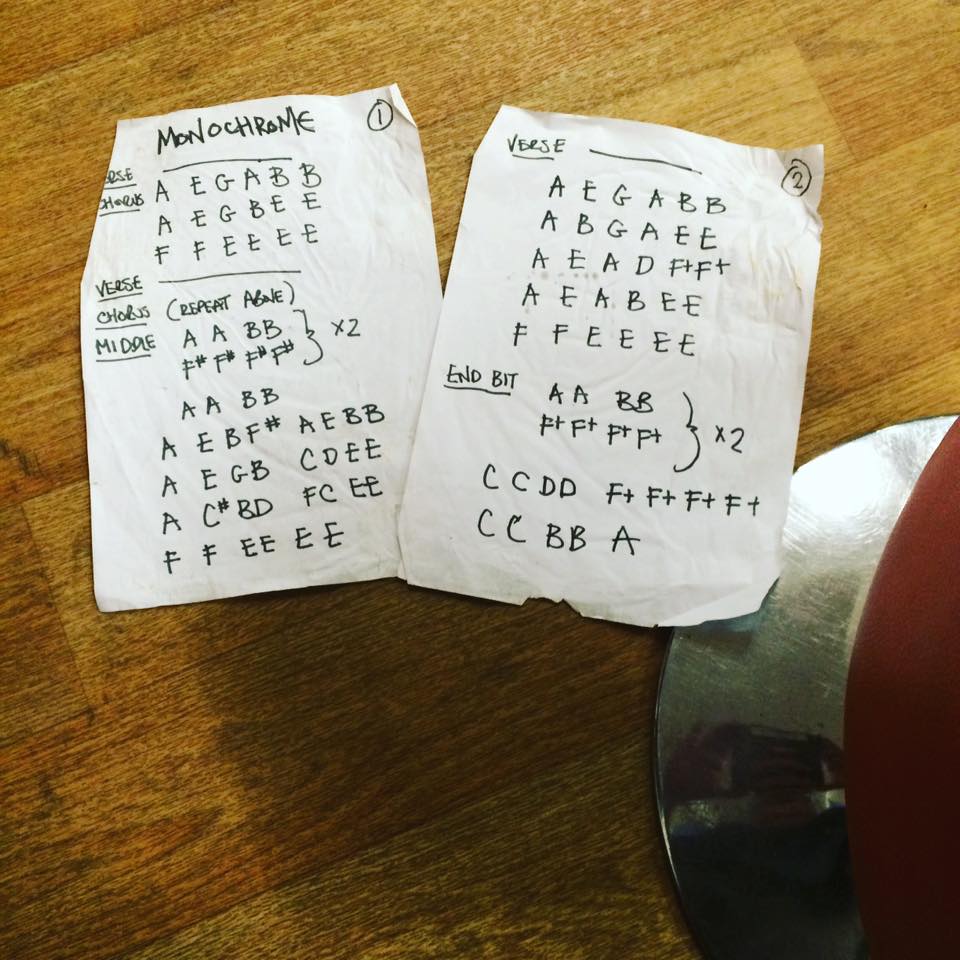 MONOCHROME ①
VERSE
CHORUS A E G A B B
A E G B E E
F F E E E E
VERSE
CHORUS (REPEAT ABOVE)
MIDDLE A A BB
F# F# F# F# } x2
A A BB
A E B F# A E B B
A E G B C D E E
A C# B D F C E E
F F E E E E
VERSE ②
A E G A B B
A B G A E E
A E A D F+ F+
A E A B E E
F F E E E E
END BIT
A A BB
F+ F+ F+ F+ } x2
C C D D F+ F+ F+ F+
C C BB A